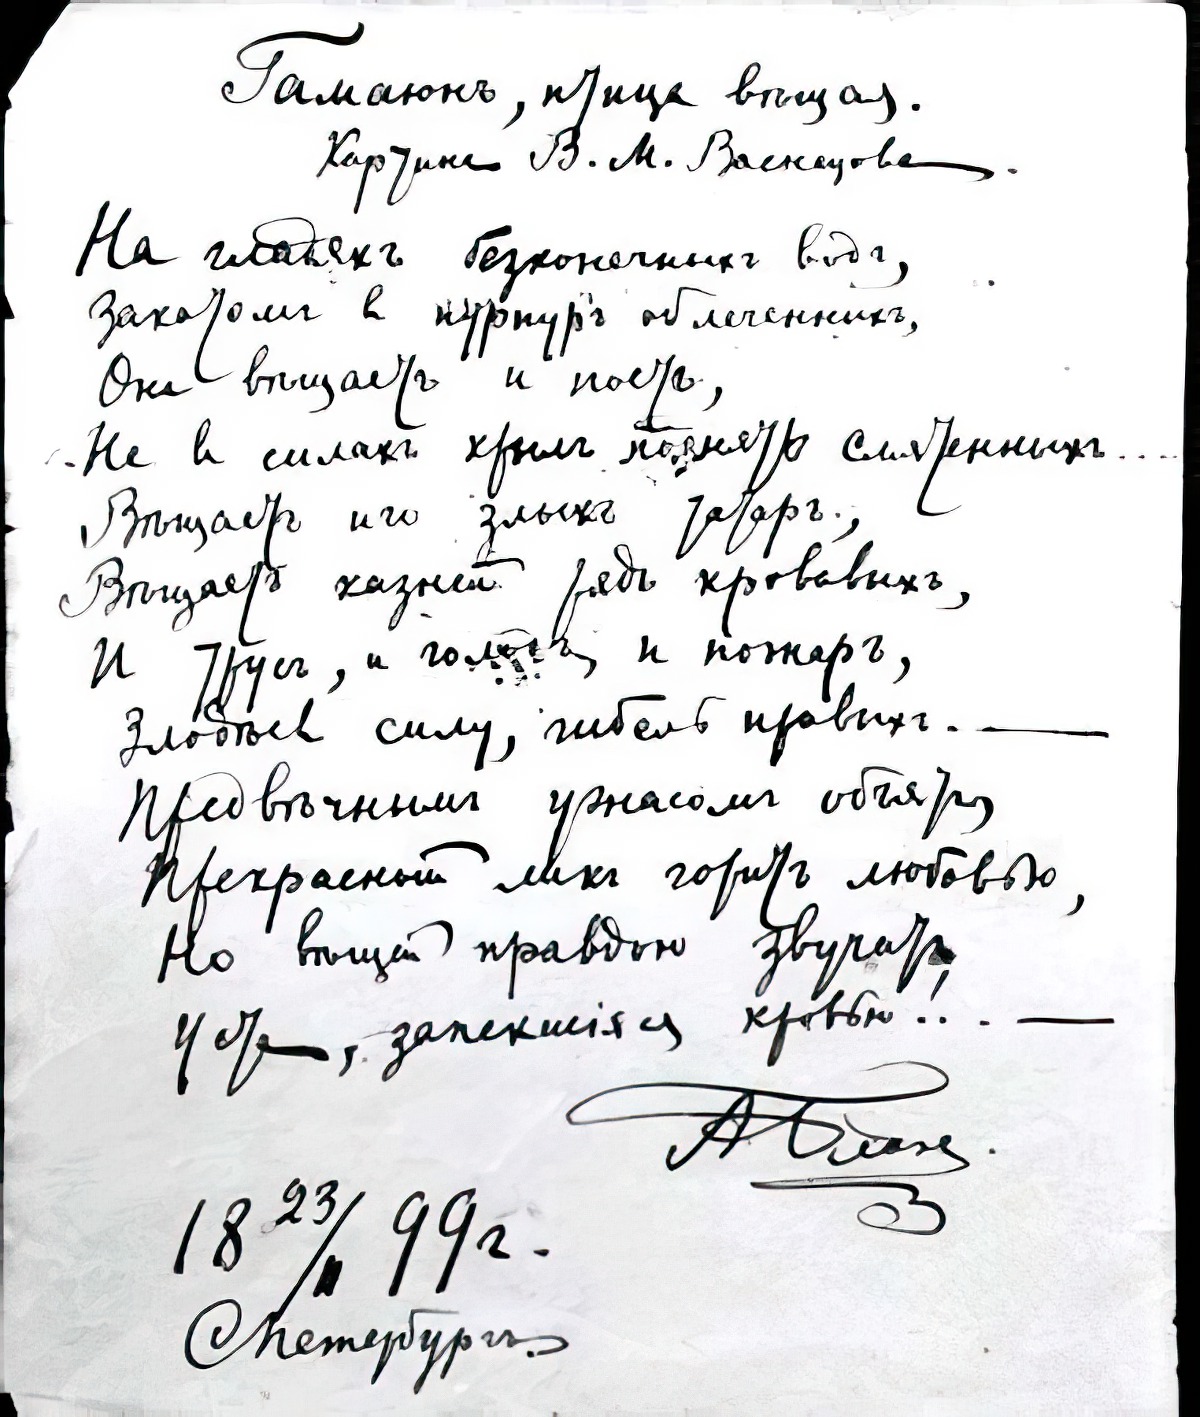 Гамаюнъ, птица вѣщая.
Картина В. М. Васнецова.
На гладяхъ безконечныхъ водъ,
Закатомъ в пурпуръ облеченныхъ,
Она вѣщаетъ и поетъ,
Не в силахъ крылъ поднять смятенныхъ....
Вѣщаетъ иго злыхъ татаръ,
Вѣщаетъ казней рядъ кровавыхъ,
И трусъ, и голодъ, и пожаръ,
Злодѣев силу, гибель правыхъ. —
Предвѣчнымъ ужасомъ объятъ,
Прекрасный ликъ горитъ любовью,
Но вѣщей правдою звучатъ
Уста, запекшіяся кровью!.. —
А Блокъ.
18 23/II 99 г.
СПетербургъ.